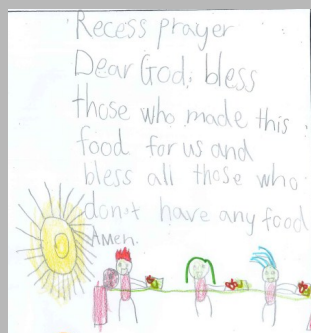 Recess prayer
Dear God, bless
those who made this
food for us and
bless all those who
don't have any food
Amen.